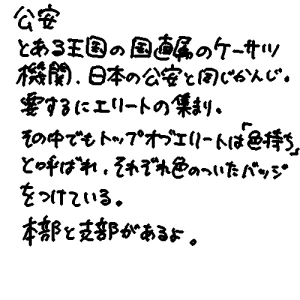 公安
とある王国の国直属のケーサツ
機関、日本の公安と同じかんじ。
要するにエリートの集まり。
その中でもトップオブエリートは「色持ち」
と呼ばれ、それぞれ色のついたバッジ
をつけている。
本部と支部があるよ。